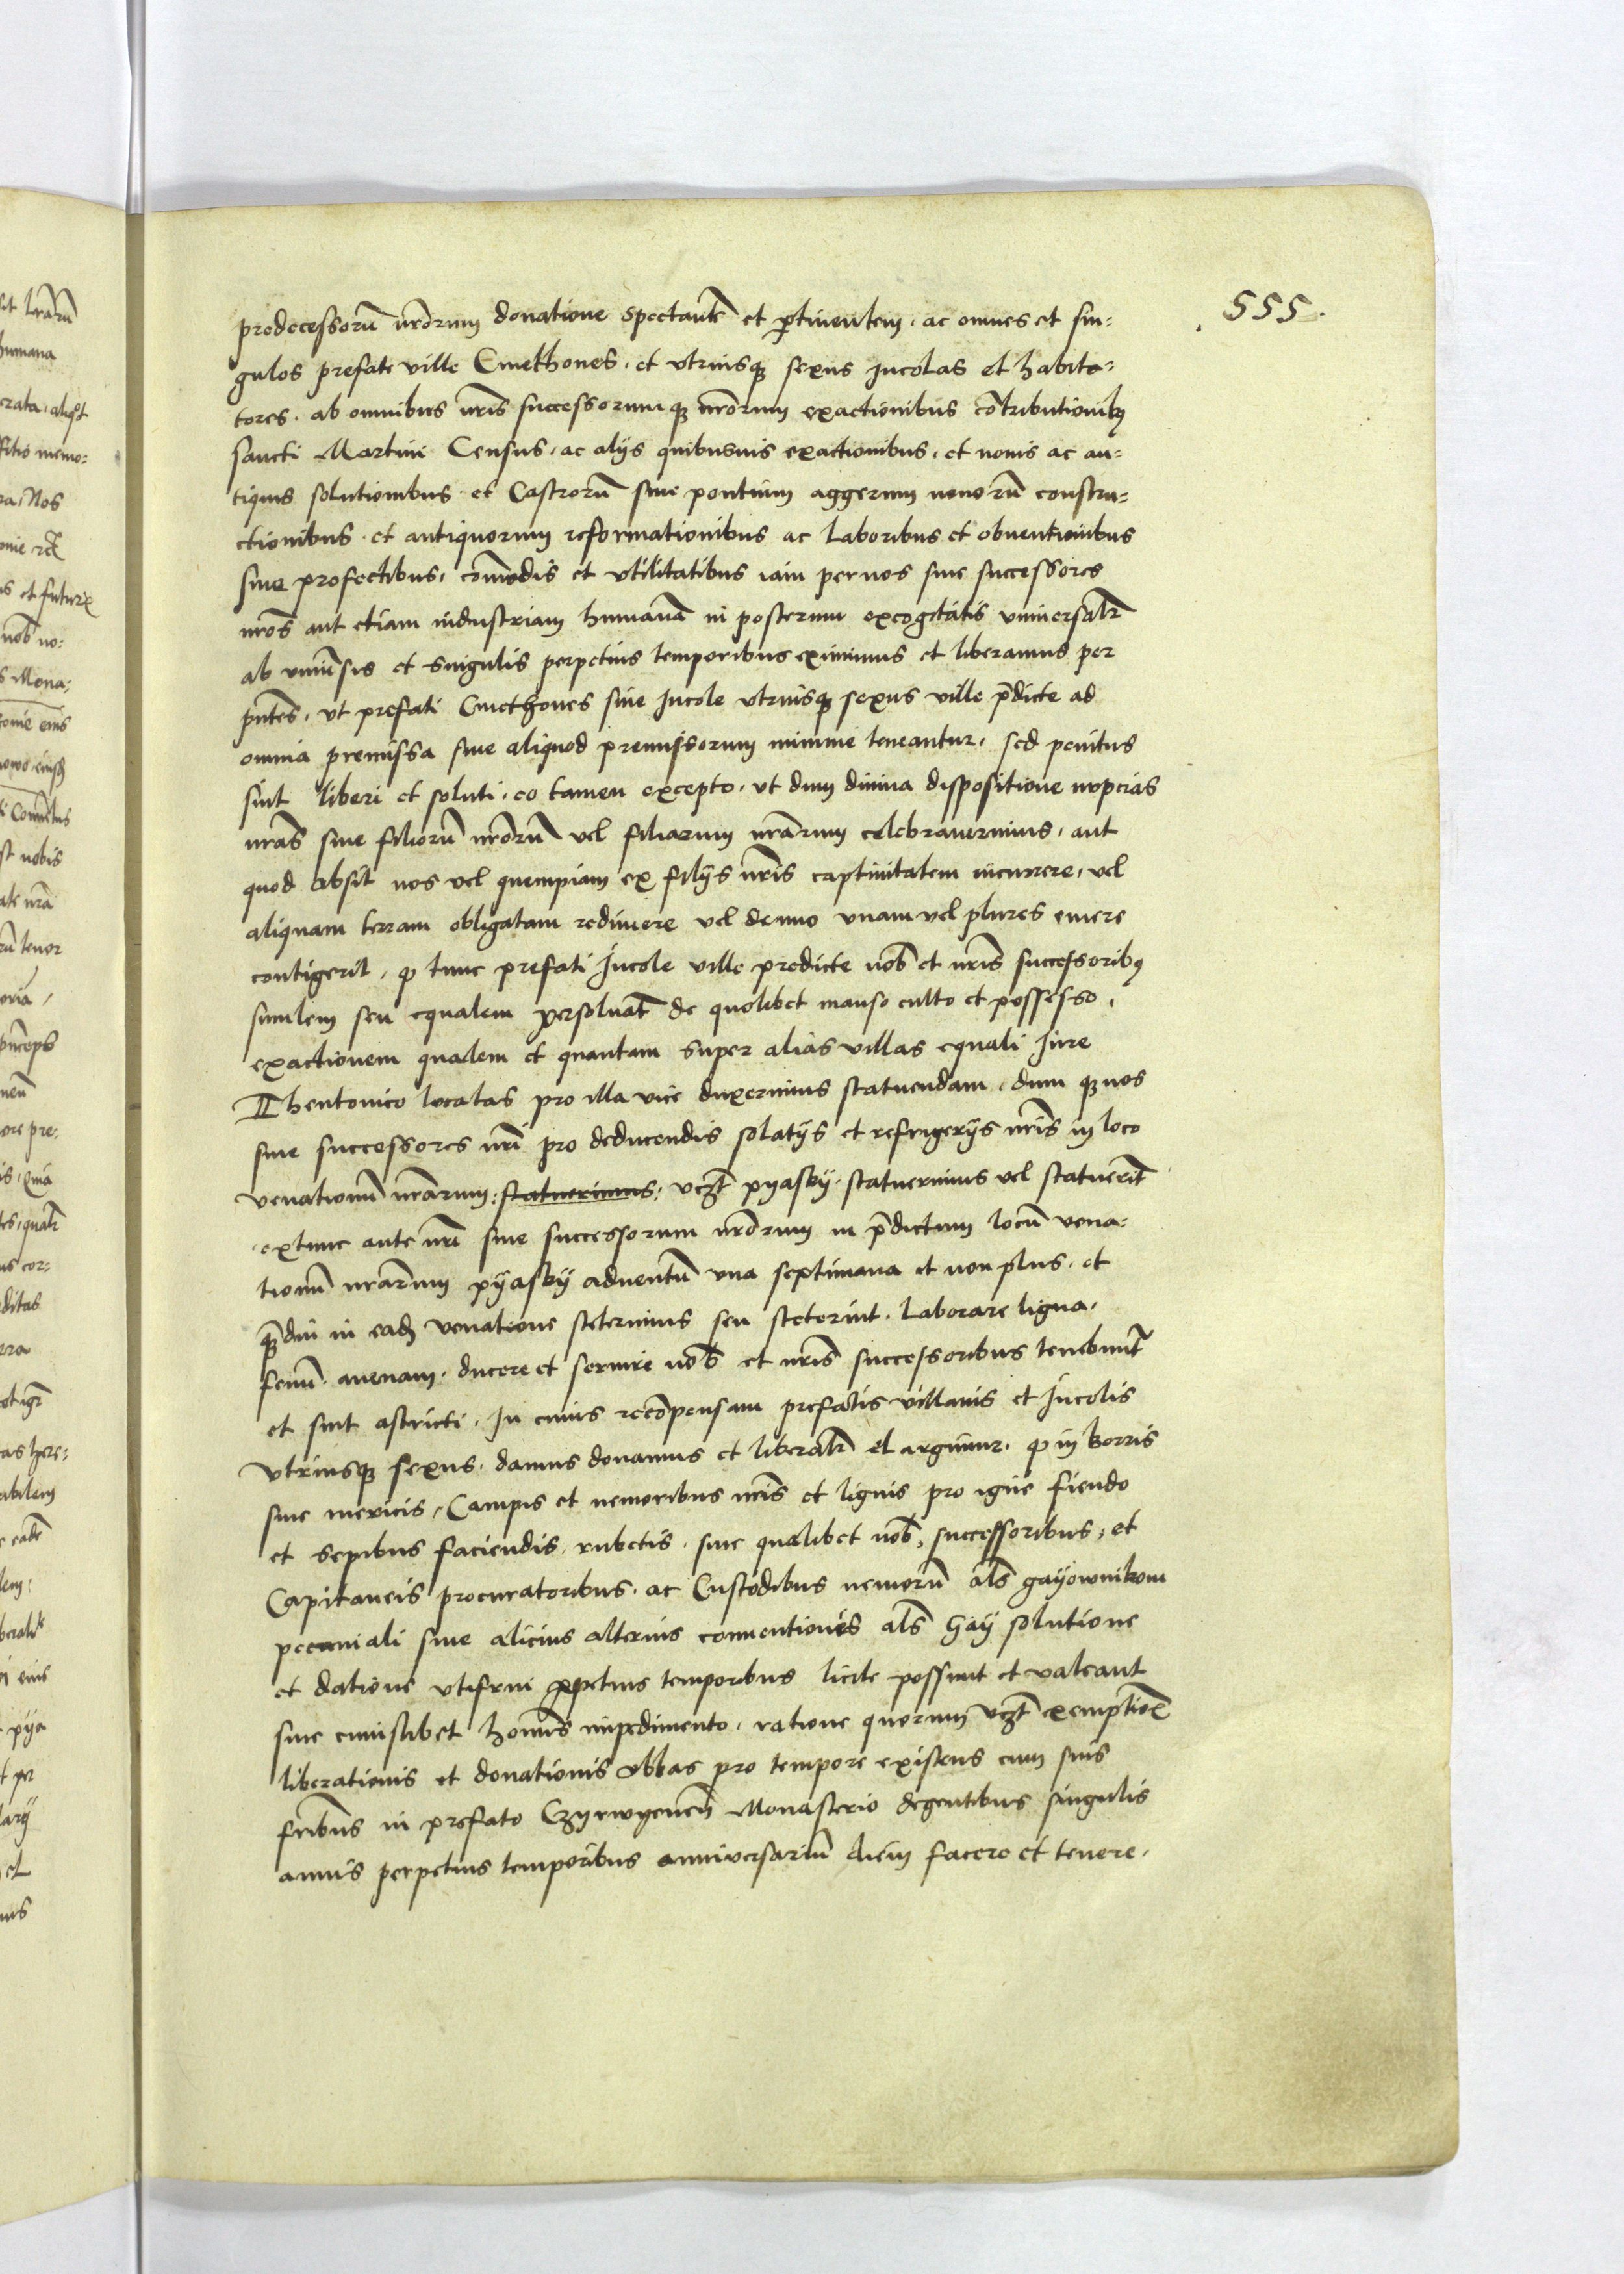 555.
predecessorū nr̄orum donatione spectantē et ꝑtinentem, ac omnes et sin-
gulos prefate ville Cmethones, et vtriusqꝫ sexus Incolas et habita-
tores, ab omnibus nr̄is successorumqꝫ nr̄orum exactionibus cōtributionibꝰ
sancti Martini Census, ac alijs quibusuis exactionibus, et nouis ac an-
tiquis solutionibus et Castrorū siue pontium aggerum nouorū constru-
ctionibus et antiquorum reformationibus ac laboribus et obuentionibus
siue profectibus, cōmodis et vtilitatibus iam per nos siue successores
nr̄os aut etiam industriam humanā in posterum excogitatis vniuersalr̄
ab vniūsis et singulis perpetuis temporibus eximimus et liberamus per
pn̄tes, vt prefati Cmethones siue Incole vtriusqꝫ sexus ville p̄dicte ad
omnia premissa siue aliquod premissorum minime teneantur, sed penitus
sint liberi et soluti, eo tamen excepto, vt dum diuina dispositione nupcias
nr̄as siue filiorū nr̄orū vel filiarum nr̄arum celebrauerimus, aut
quod absit nos vel quempiam ex filijs nr̄is captiuitatem incurrere, vel
aliquam terram obligatam redimere vel denuo vnam vel plures emere
contigerit, ꝙ tunc prefati Incole ville predicte nob̄ et nr̄is successoribꝰ
similem seu equalem persoluāt de quolibet manso culto et possesso,
exactionem qualem et quantam super alias villas equali Jure
Theutonico locatas pro illa vice duxerimus statuendam, dumqꝫ nos
siue successores nr̄i pro deducendis solatijs et refrigerijs nr̄is in loco
venationū nr̄arum: statuerimus: vcꝫt pyasky statuerimus vel statuerīt
extunc ante nr̄i siue successorum nr̄orum in p̄dictum locū vena-
tionū nr̄arum pyasky aduentū vna septimana et non plus, et
qꝫ̄diu in eadꝫ venatione steterimus seu steterint, laborare ligna,
fenū auenam, ducere et seruire nob̄ et nr̄is successoribus tenebunt̄
et sint astricti, In cuius recōpensam prefatis villanis et Incolis
vtriusqꝫ sexus damus donamus et liberalr̄ elargimur, ꝙ in borris
siue mericis, Campis et nemoribus nr̄is et lignis pro igne fiendo
et sepibus faciendis, rubetis, sine qualibet nob̄, successoribus, et
Capitaneis procuratoribus, ac Custodibus nemorū als̄ gayownikom
pecuniali siue alicius alterius conuentionis als̄ Gay solutione
et datione vtifrui ꝑpetuis temporibus licite possunt et valeant
sine cuiuslibet hoīnis impedimento, ratione quorum vcꝫt exemption̄
liberationis et donationis abbas pro tempore existens cum suis
frībus in prefato Czyrwyenen̄ Monasterio degentibus singulis
annis perpetuis temporibus anniversariū diem facere et tenere,